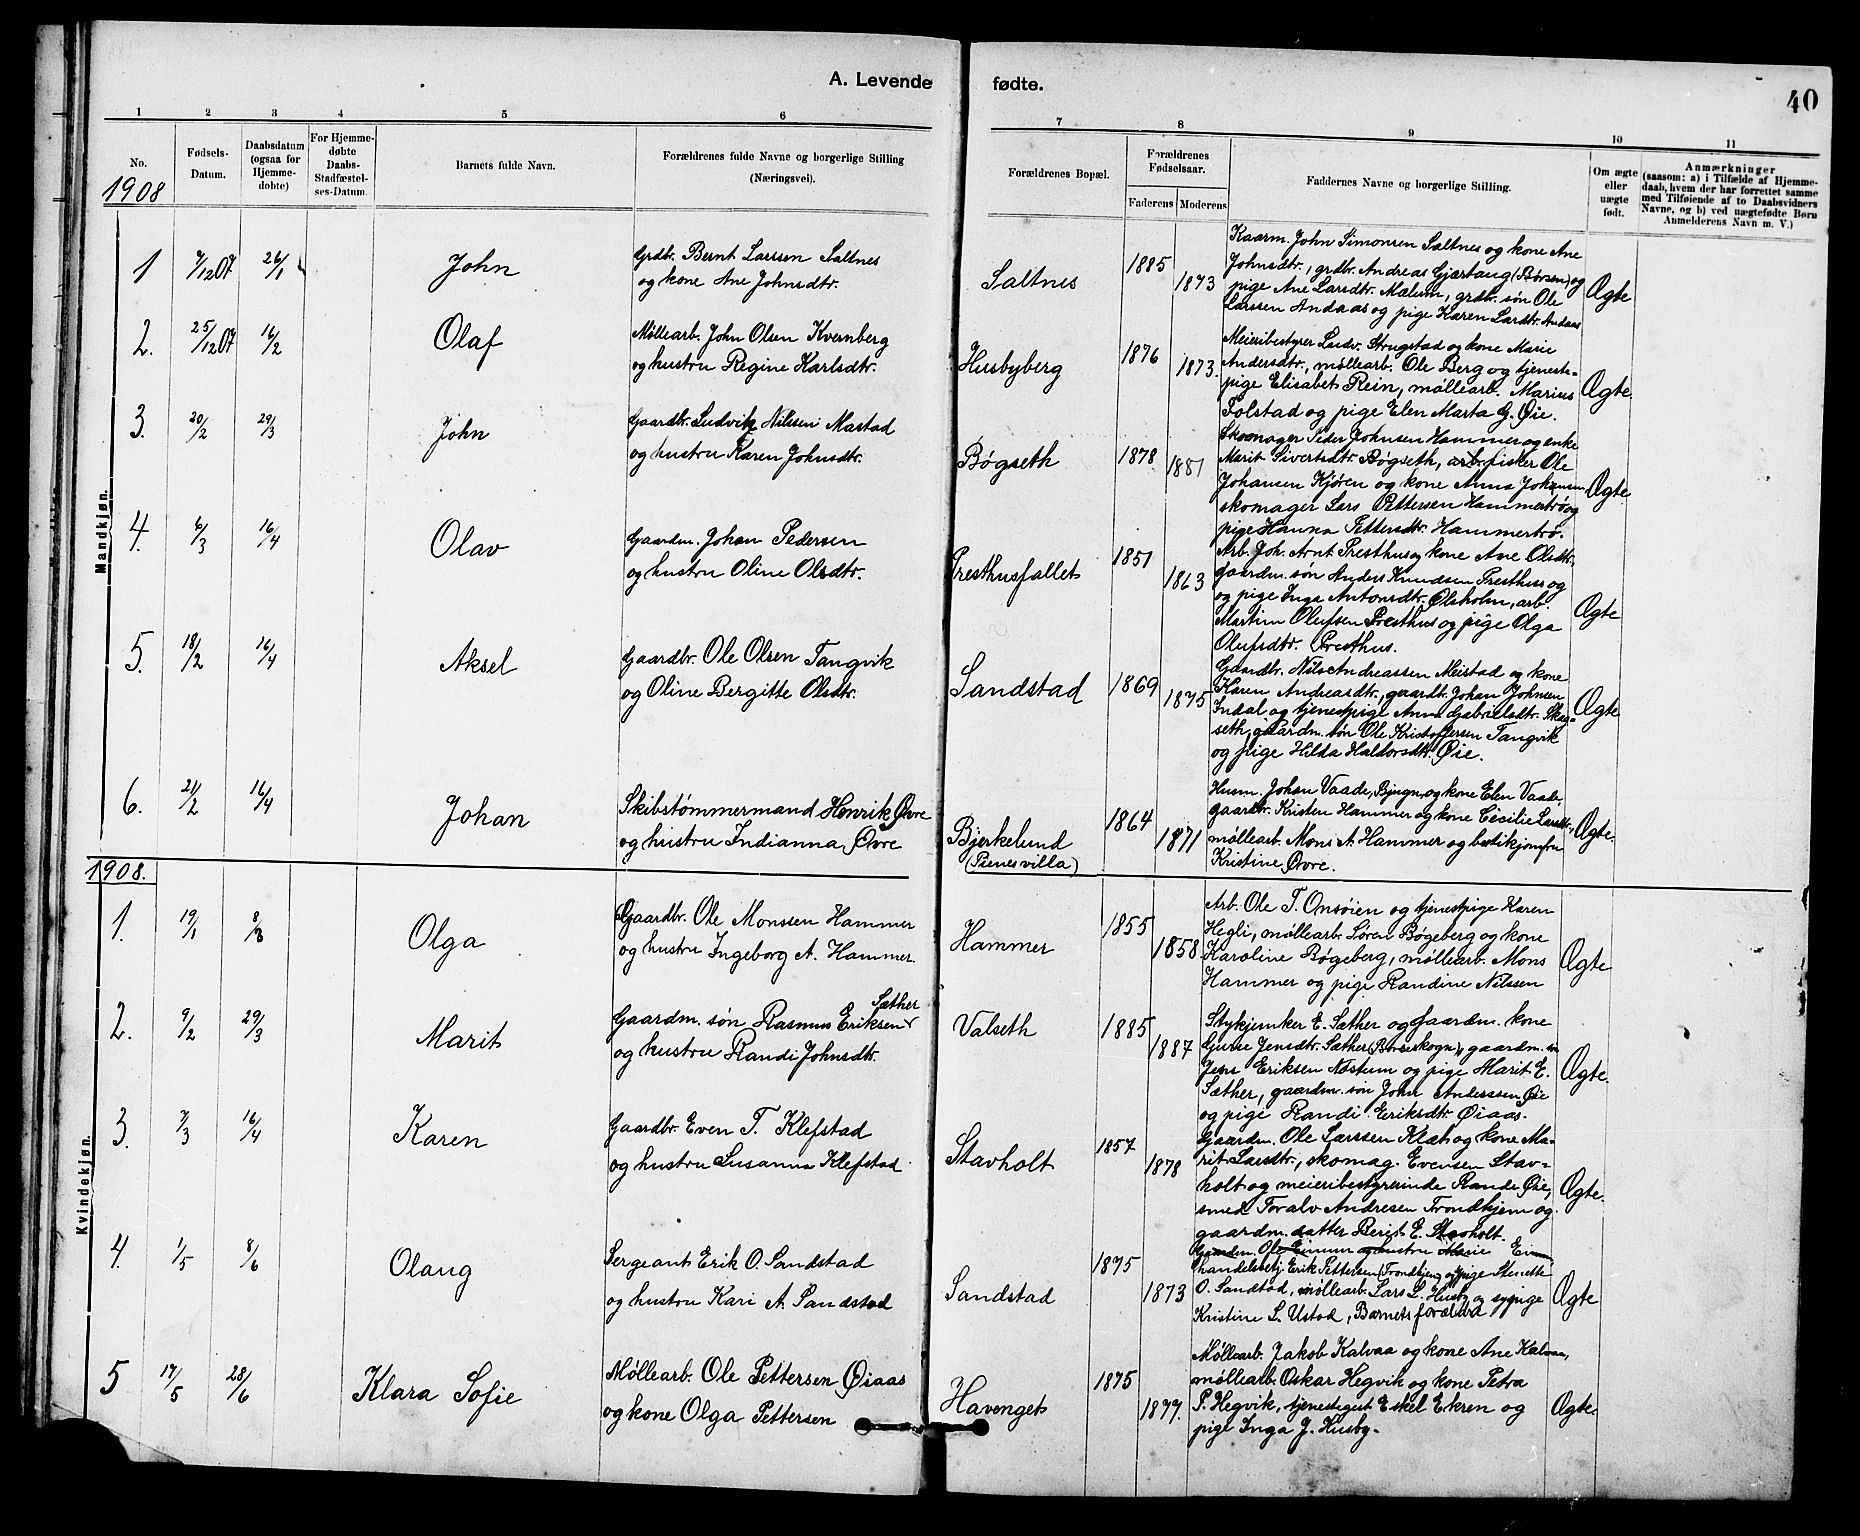 A. Levende fødte.
40
1 2 3 4 5 6 7 8 9 10 11
No.
Fødsels-
Datum.
Daabsdatum
(ogsaa for
Hjemme-
døbte)
For Hjemme-
døbte
Daabs-
Stadfæstel-
ses-Datum.
Barnets fulde Navn.
Forældrenes fulde Navne og borgerlige Stilling
(Næringsvei).
Forældrenes Bopæl.
Forældrenes
Fødselsaar.
Faderens
Moderens
Faddernes Navne og borgerlige Stilling.
Om ægte
eller
uægte
født.
Anmærkninger
(saasom: a) i Tilfælde af Hjemme-
daab, hvem der har forrettet samme
med Tilføiende af to Daabsvidners
Navne, og b) ved uægtefødte Børn
Anmelderens Navn m. V.)
1908
Mandkjøn.
1 7/12 07 26/1 John
Grdbr. Bernt Larssen Saltnes
og kone Ane Johnsdtr.
Saltnes 1885 1873
Kaarm. John Simonsen Saltnes og kone Ane
Johnsdtr., grdbr. Andreas Gjærtaug (Børsen) og
pige Ane Larsdtr. Mælum, grdbr. søn Ole
Larssen Andaas og pige Karen Larsdtr. Andaas
Ægte
2. 25/12 07 16/2 Olaf
Møllearb. John Olsen Kvernberg
og hustru Regine Karlsdtr.
Husbyberg 1876 1873.
Meieribestyrer Ludv. Strugstad og kone Marie
Andersdtr., møllearb. Ole Berg og tjeneste-
pige Elisabet Rein, møllearb. Marius
Folstad og pige Elen Marta G. Øie.
Ægte.
3. 20/2 29/3 John
Gaardbr. Ludvik Nilssen Mastad
og hustru Karen Johnsdtr.
Bøgseth 1878 1881
Skomager Peder Johnsen Hammer og enke
Marit Sivertsdtr. Bøgseth, fisker Ole
Johansen Kjøren og kone Anna Johansen
skomager Lars Pettersen Hammertrø og
pige Hanna Pettersdtr. Hammertrø.
Ægte
4. 6/3 16/4 Olav
Gaardm. Johan Pedersen
og hustru Oline Olsdtr.
Presthusfallet 1851 1863
Arb. Joh. Arnt Presthus og kone Ane Olsdtr.
gaardm. søn Anders Knudsen Presthus og
og pige Inga Antonsdtr. Ølsholm, arb.
Martin Olufsen Presthus og pige Olga
Olufsdtr. Presthus.
Ægte
5. 18/2 16/4 Aksel
Gaardbr. Ole Olsen Tangvik
og Oline Bergitte Olsdtr.
Sandstad 1869 1875
Gaardbr. Nils Andreassen Meistad og kone
Karen Andreasdtr., gaardbr. Johan Johnsen
Indal og tjenestpige Anna Gabrielsdtr. Skau-
seth, gaardm. søn Ole Kristoffersen Tangvik
og pige Hilda Haldorsdtr. Øie.
Ægte
6. 21/2 16/4 Johan
Skibstømmermand Henrik Øvre
og hustru Indianna Øvre
Bjerkelund
(Pienes villa)
1864 1871
Husm. Johan Vaade, Bjugn, og kone Elen Vaade,
gaardbr. Kristen Hammer og kone Cecilie Larsdtr.,
møllearb. Mons A. Hammer og butikjomfru
Kristine Øvre.
Ægte.
1908.
Kvindekjøn.
1. 19/1 8/3 Olga
Gaardbr. Ole Monssen Hammer
og hustru Ingeborg A. Hammer
Hammer 1855 1858.
Arb. Ole T. Onsøien og tjenestpige Karen
Hegli, møllearb. Søren Bøgeberg og kone
Karoline Bøgeberg, møllearb. Mons
Hammer og pige Randine Nilssen
Ægte
2. 9/2 29/3 Marit
Gaardm. søn Rasmus Eriksen Sæther
og hustru Randi Johnsdtr.
Valseth 1885 1887
Stykjunker E. Sæther og Gaardm. kone
Gurue Jensdtr. Sæther (Børseskogn), gaardm. søn
Jens Eriksen Nøstum og pige Marit E.
Sæther, gaardm. søn John Anderssen Øie
og pige Randi Eriksdtr. Øiaas.
Ægte.
3. 7/3 16/4 Karen
Gaardbr. Even T. Klefstad
og hustru Susanna Klefstad
Stavholt 1857 1878
Gaardm. Ole Larssen Klæt og kone Ma-
rit Larsdtr., skomag. Evensen Stav-
holt og meieribestyrerinde Rande Øie,
smed Toralv Andresen Trondhjem og
gaardm. datter Berit E. Stavholt.
Ægte.
4. 1/5 8/6 Olaug
Sergeant Erik O. Sandstad
og hustru Kari A. Sandstad
Sandstad 1875 1873
handelsbetj. Erik Pettersen (Trondhjem) og pige Stinette
O. Sandstad, møllearb. Lars L. Husby og sypige
Kristine L. Ustad, Barnets forældre
Ægte
5 17/5 28/6 Klara Sofie
Møllearb. Ole Pettersen Øiaas
og kone Olga Pettersen
Havenget 1875 1877.
Møllearb. Jakob Kalvaa og kone Ane Kalvaa,
møllearb. Oskar Hegvik og kone Petra
P. Hegvik, tjenestegut Eskel Ekren og
pige Inga J. Husby.
Ægte.